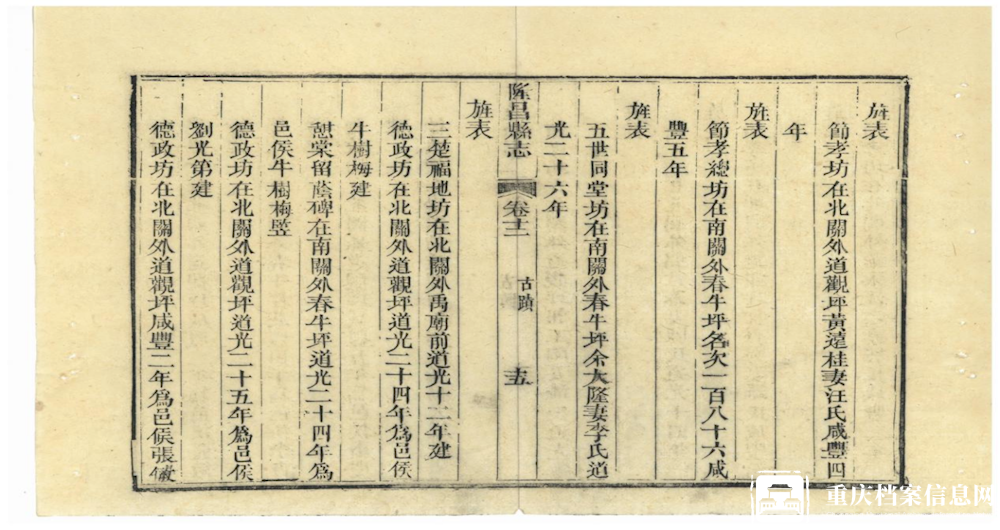 旌表
節孝坊在北關外道觀坪黃遠桂妻汪氏咸豐四
年
旌表
節孝總坊在南關外春牛坪名次一百八十六咸
豐五年
旌表
五世同堂坊在南關外春牛坪余大隆妻李氏道
光二十六年
隆昌縣志 卷十二 古蹟 十五
旌表
三楚福地坊在北關外禹廟前道光十二年建
德政坊在北關外道觀坪道光二十四年為邑侯
牛樹梅建
憇棠留蔭碑在南關外春牛坪道光二十四年為
邑侯牛樹梅竪
德政坊在北關外道觀坪道光二十五年為邑侯
劉光第建
德政坊在北關外道觀坪咸豐二年為邑侯張
重庆档案信息网